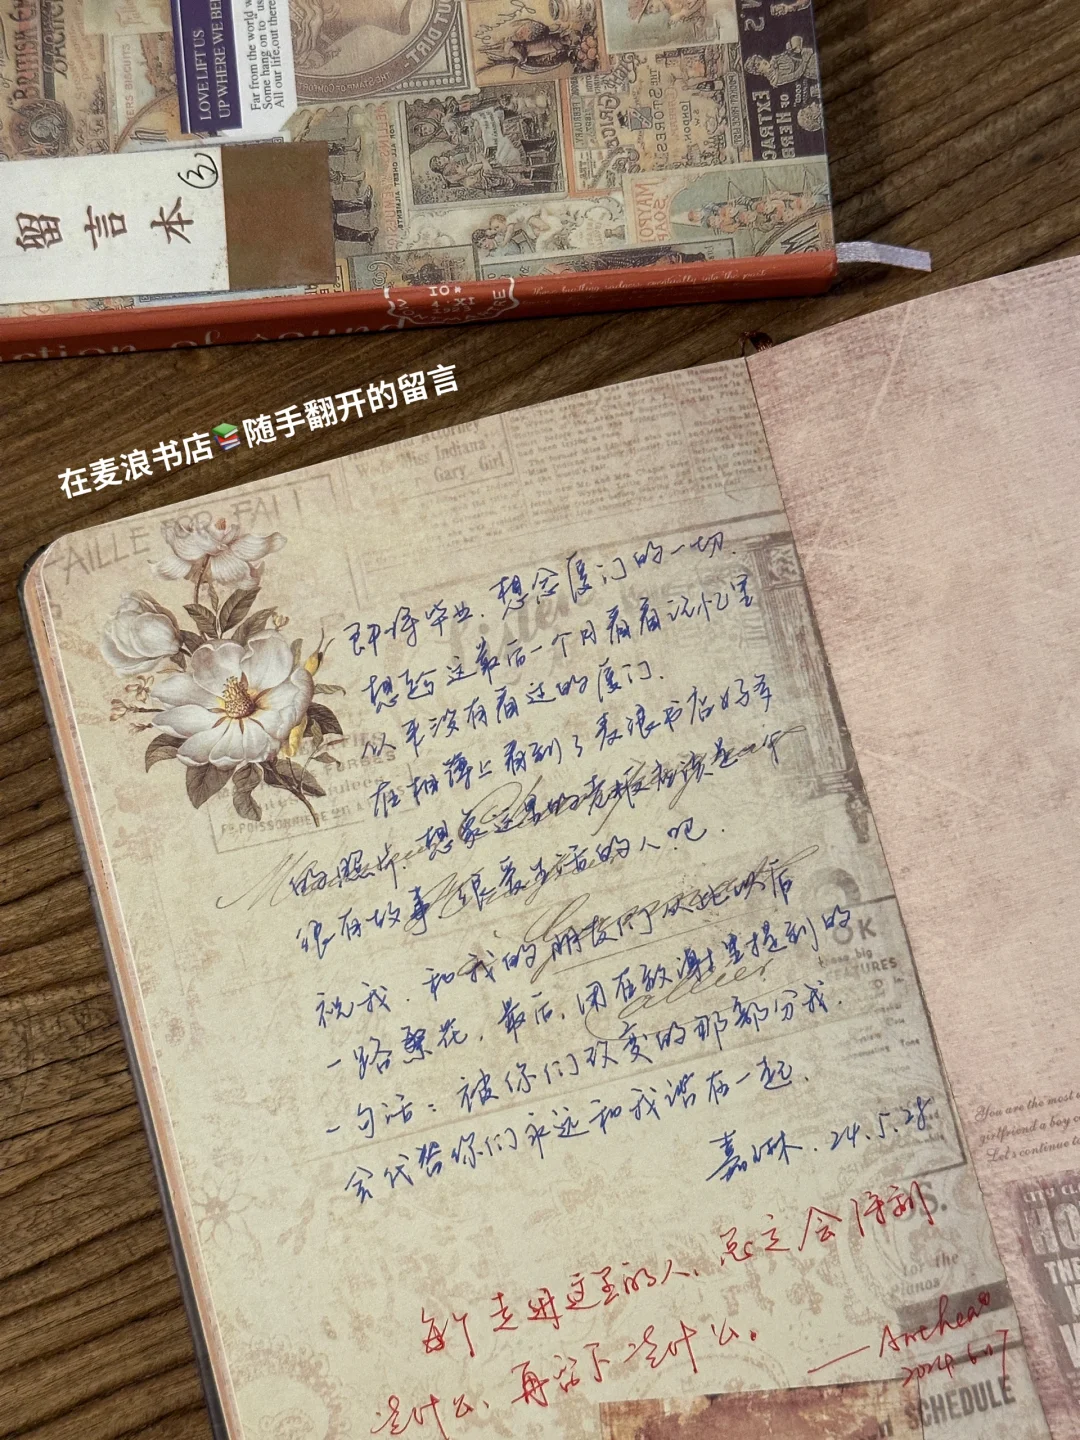 BRITISH
LOVE LIFT US
UP WHERE WE BE
Far from the world w
Some hang on to "us
All our life, out there
留言本
③
在麦浪书店📚随手翻开的留言
Gary Girl
即将毕业，想念厦门的一切.
想趁这最后一个月看看记忆里
从来没有看过的厦门.
在相簿上看到了麦浪书店好多
的照片，想象这里的老板应该是一个
很有故事 很爱生活的人吧.
祝我，和我的朋友们 从此以后
一路繁花，最后，用在致谢里提到的
一句话：被你们改变的那部分我，
会代替你们永远和我活在一起.
嘉琳. 24.5.28
每个走进这里的人，总是会得到
些什么，再留下些什么。
2024.6.17
OK
FEATURES
for the
pianos
SCHEDULE
You are the most
girlfriend a boy c
Let's continue to